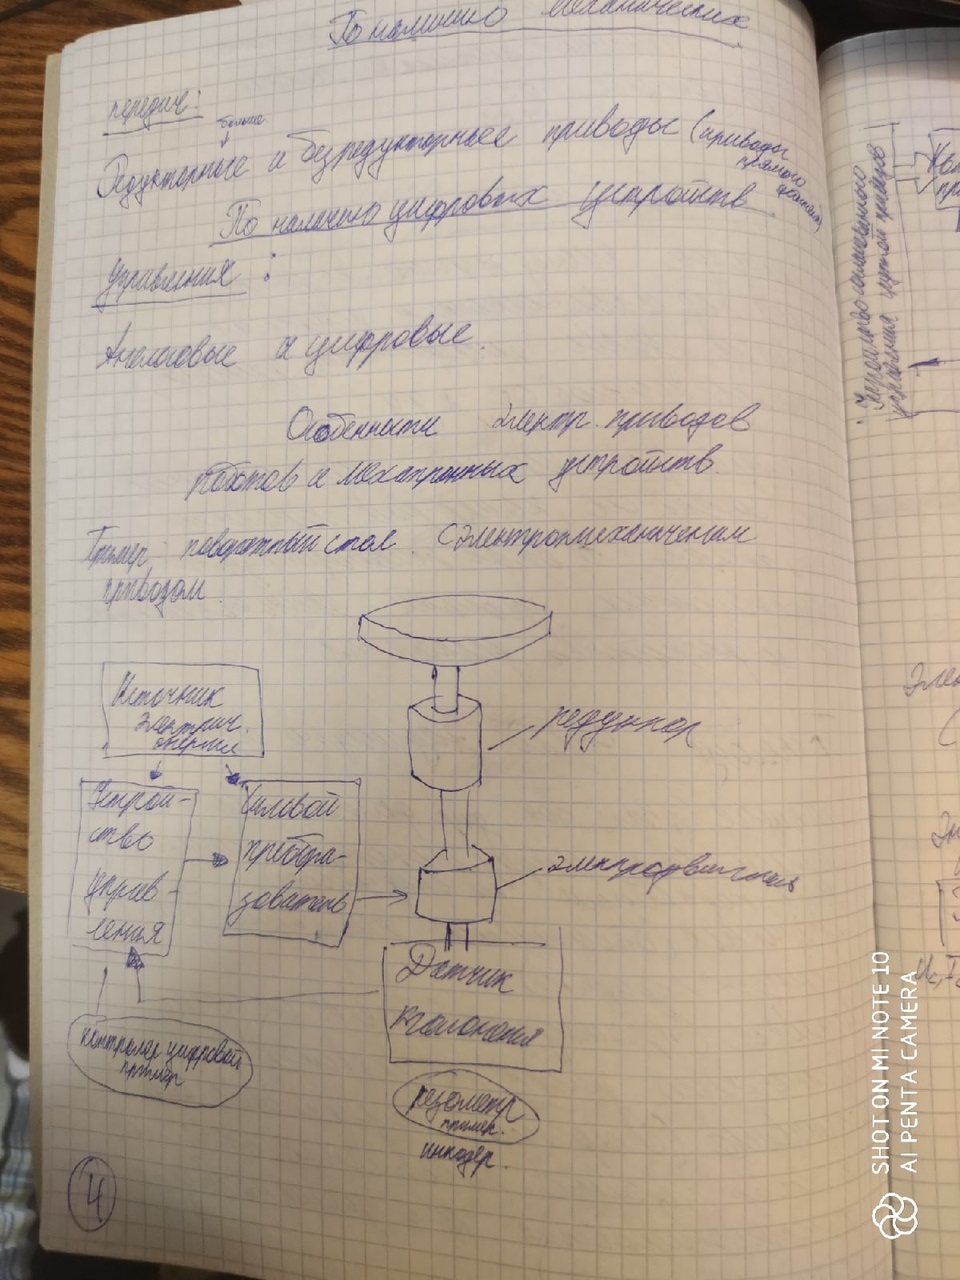 По наличию механических
передач:
больше
Редукторные и безредукторные приводы (приводы
прямого
По наличию цифровых устройств
управления :
Аналоговые и цифровые.
Особенности электр. приводов
роботов и мехатронных устройств.
Пример поворотный стол с электромеханическим
приводом.
Источник
электрич.
энергии
редуктор
Устрой-
ство
управ-
ления
Силовой
преобра-
зователь
электродвигатель
Датчик
положения
контролер цифровой
пример
пример.
инкодер.
4
Устройство
управления
SHOT ON MI NOTE 10
AI PENTA CAMERA